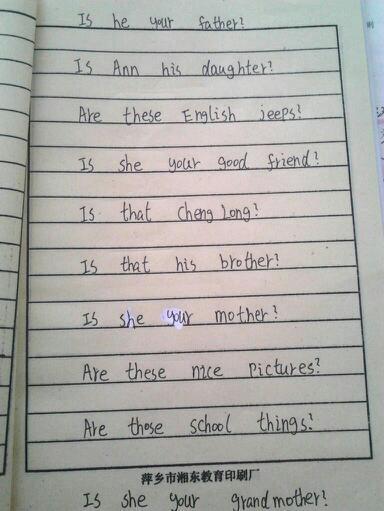 Is he your father?
Is Ann his daughter?
Are these English jeeps?
Is she your good friend?
Is that Cheng Long?
Is that his brother?
Is she your mother?
Are these nice pictures?
Are those school things?
萍乡市湘东教育印刷厂
Is she your grandmother?